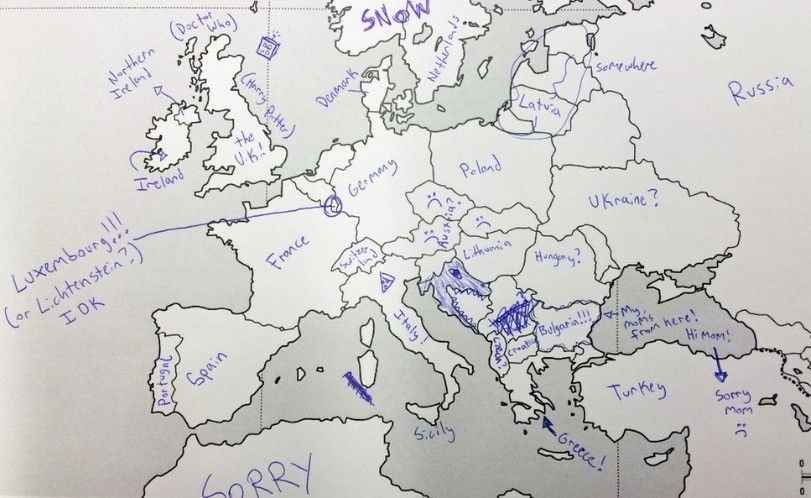 SNOW
(Doctor
Who)
Netherlands
Northern
Ireland
Denmark
somewhere
(Harry Potter)
Latvia
Russia
the
U.K.!
Ireland
Germany
Poland
Ukraine?
Austria?
Luxembourg!!!
(or Lichtenstein?)
IDK
France
Switzer
land
Lithuania
Hungary?
Italy!
Bulgaria!!!
My
mom's
from here!
Hi Mom!
Croatia
Portugal
Spain
Turkey
Sorry
Mom
Sicily
Greece!
SORRY